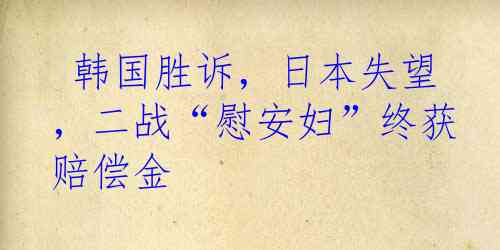 韩国胜诉，日本失望
，二战“慰安妇”终获
赔偿金